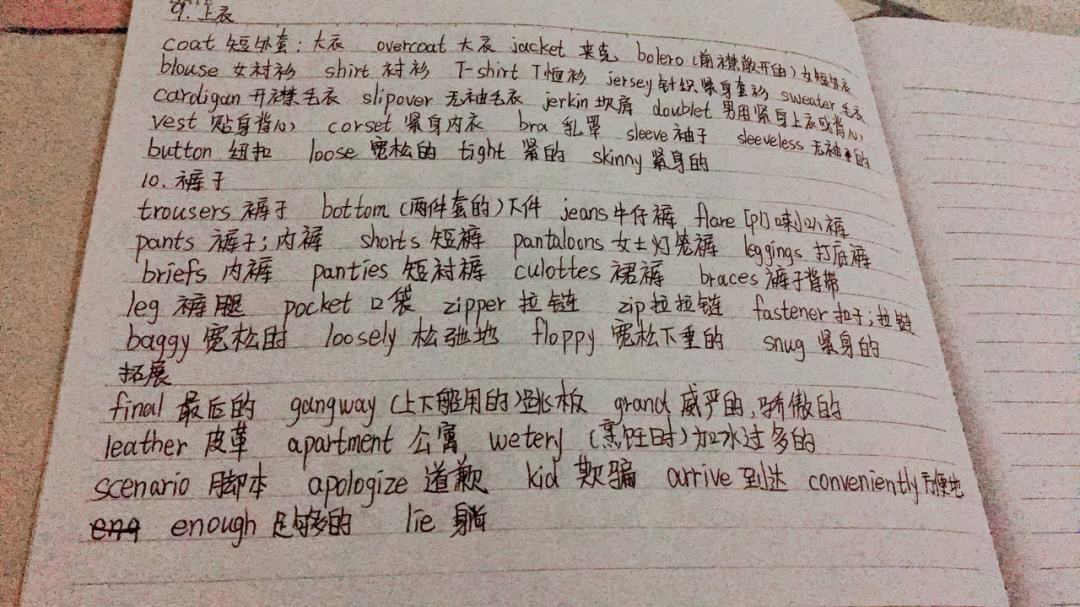 9. 上衣
coat 短外套；大衣 overcoat 大衣 jacket 夹克 bolero (前襟敞开的)女短外衣
blouse 女衬衫 shirt 衬衫 T-shirt T恤衫 jersey 针织紧身套衫 sweater 毛衣
cardigan 开襟毛衣 slipover 无袖毛衣 jerkin 坎肩 doublet 男用紧身上衣或背心
vest 贴身背心 corset 紧身内衣 bra 乳罩 sleeve 袖子 sleeveless 无袖的
button 纽扣 loose 宽松的 tight 紧的 skinny 紧身的
10. 裤子
trousers 裤子 bottom (两件套的)下件 jeans 牛仔裤 flare [pl]喇叭裤
pants 裤子；内裤 shorts 短裤 pantaloons 女士灯笼裤 leggings 打底裤
briefs 内裤 panties 短衬裤 culottes 裙裤 braces 裤子背带
leg 裤腿 pocket 口袋 zipper 拉链 zip 拉拉链 fastener 扣子；拉链
baggy 宽松的 loosely 松弛地 floppy 宽松下垂的 snug 紧身的
拓展
final 最后的 gangway (上下船用的)跳板 grand 威严的，骄傲的
leather 皮革 apartment 公寓 watery (烹饪时)加水过多的
scenario 脚本 apologize 道歉 kid 欺骗 arrive 到达 conveniently 方便地
enough 足够多的 lie 躺